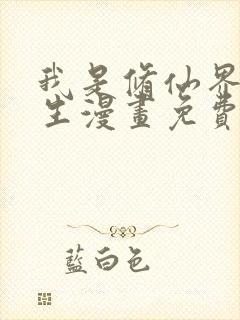 我是脩仙界
生漫畫免費
藍白色